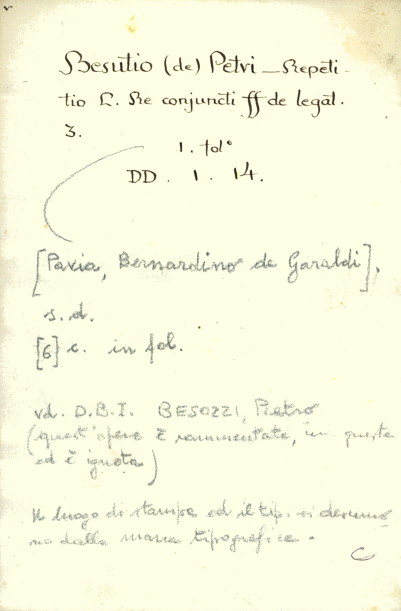 Besutio (de) Petri – Repeti-
tio L. Re conjuncti ff de legat.
3.
1. fol°
DD. 1. 14.
[Pavia, Bernardino de Garaldi],
s. d.
[6] c. in fol.
vd. D.B.I. BESOZZI, Pietro
(quest'opera è rammentata, in questa
ed è ignota)
Il luogo di stampa ed il tip. si desumo
no dalla marca tipografica.